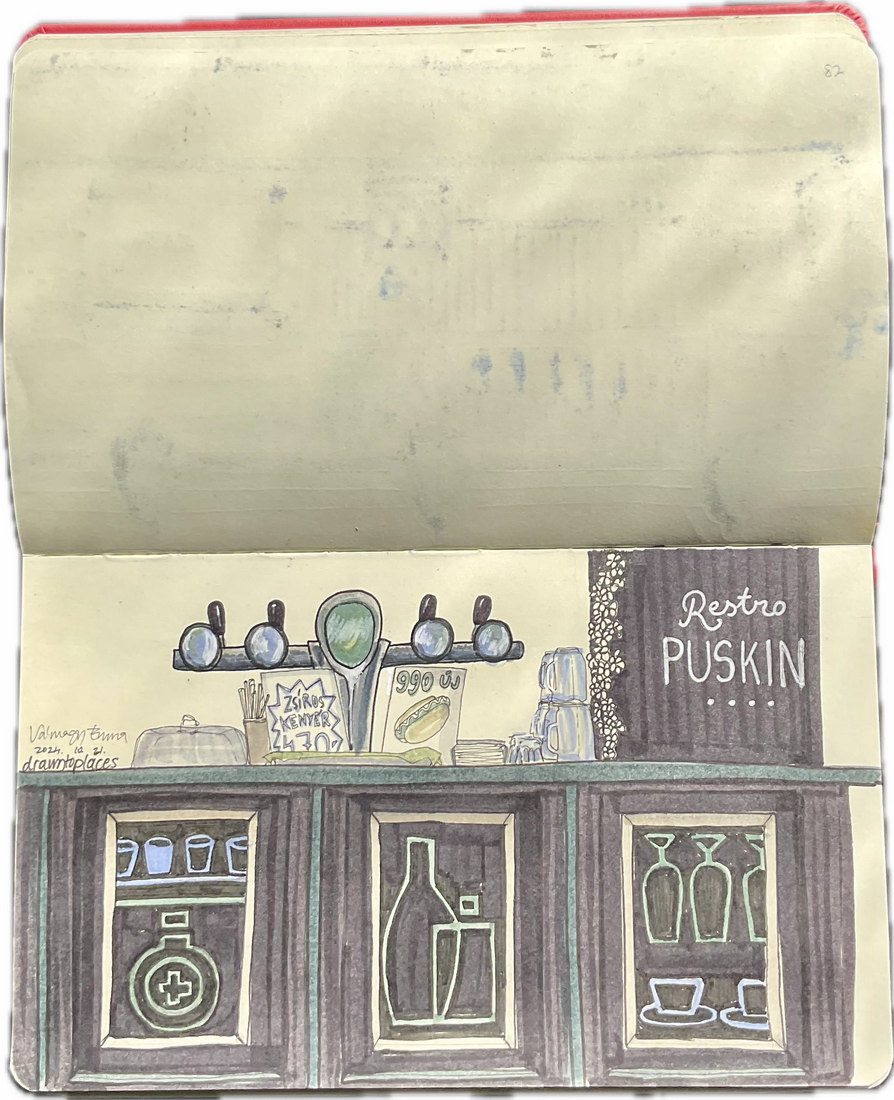 82
990 ÚJ
ZSÍROS
KENYÉR
470
Restro
PUSKIN
Válnagy Emma
2024. 10. 21.
drawntoplaces